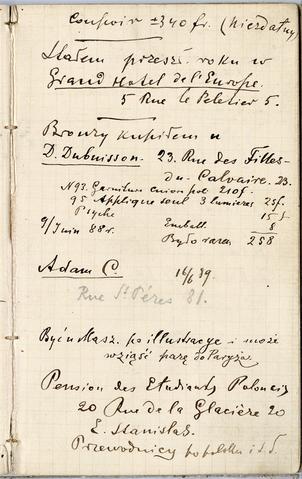 Comptoir ±340 fr. (niezdatny)
Stałem przesz. roku w
Grand Hotel de l'Europe.
5 Rue le Peletier 5.
Bronzy kupiłem u
D. Dubuisson. 23. Rue des Filles-
du-Calvaire. 23.
N 93. Garniture 210f.
95 Applique soul 3 lumieres 25f.
Psyche 15 f
9/Juin 88 r. Emball. 8
Było razem 258
Adam C. 16/6 89.
Rue St Péres 81.
Być u Masz. po illustracye i może
wziąść parę do Paryża.
Pension des Etudiants Polonais
20 Rue de la Glacière 20
E. Stanisław.
Przewodnicy po polsku i t. d.